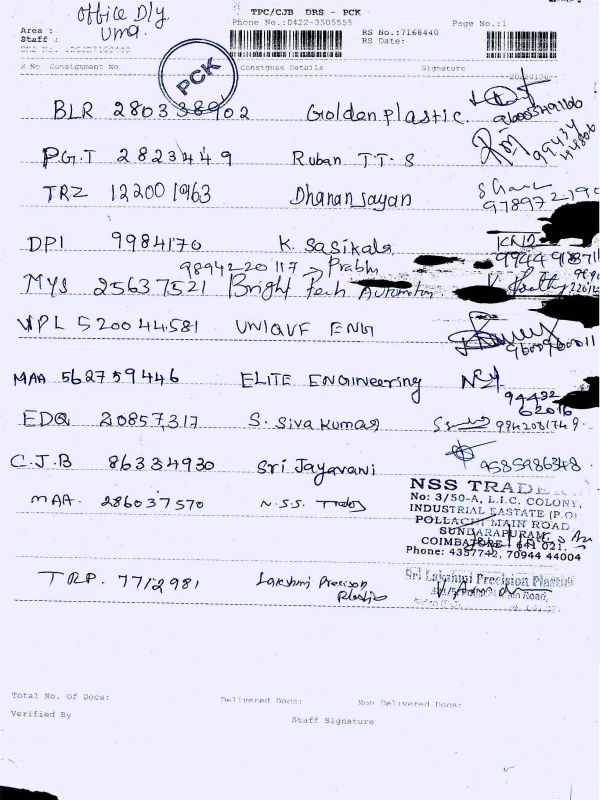 office Dly
uma
TPC/CJB DRS - PCK
Phone No.:0422-3505555
Page No.:1
Area :
Staff :
RS No.:7168440
RS Date:
DRS No. :DRSD7168440
S No Consignment No Consignee Details Signature
PCK
BLR 280338902 Golden plastic.
PGT 2823449 Ruban TT-S
99434
TRZ 122001963 Dhanansayan
DPI 9984170 K. Sasikala
9894220117 → Prabhu
MYS 25637521 Bright Tech Automation
VPL 520044581 UNIQUE ENG
9600960011
MAA 562759446 ELITE ENGINEERING
94432
62016
EDQ 20857317 S. Siva Kumar 9942031749.
C.J.B 86334930 Sri Jayavani 9585986348
MAA. 286037570 N.S.S. Trades
NSS TRADE
No: 3/50-A, L.I.C. COLONY,
INDUSTRIAL EASTATE (P.O)
POLLACHI MAIN ROAD,
SUNDARAPURAM,
COIMBATORE - 641 021.
Phone: 4357742, 70944 44004
TRP. 77/2981 Lakshmi Precison
Plastic
Sri Lakshmi Precision Plastic
Total No. Of Docs: Delivered Docs: Non Delivered Docs:
Verified By
Staff Signature